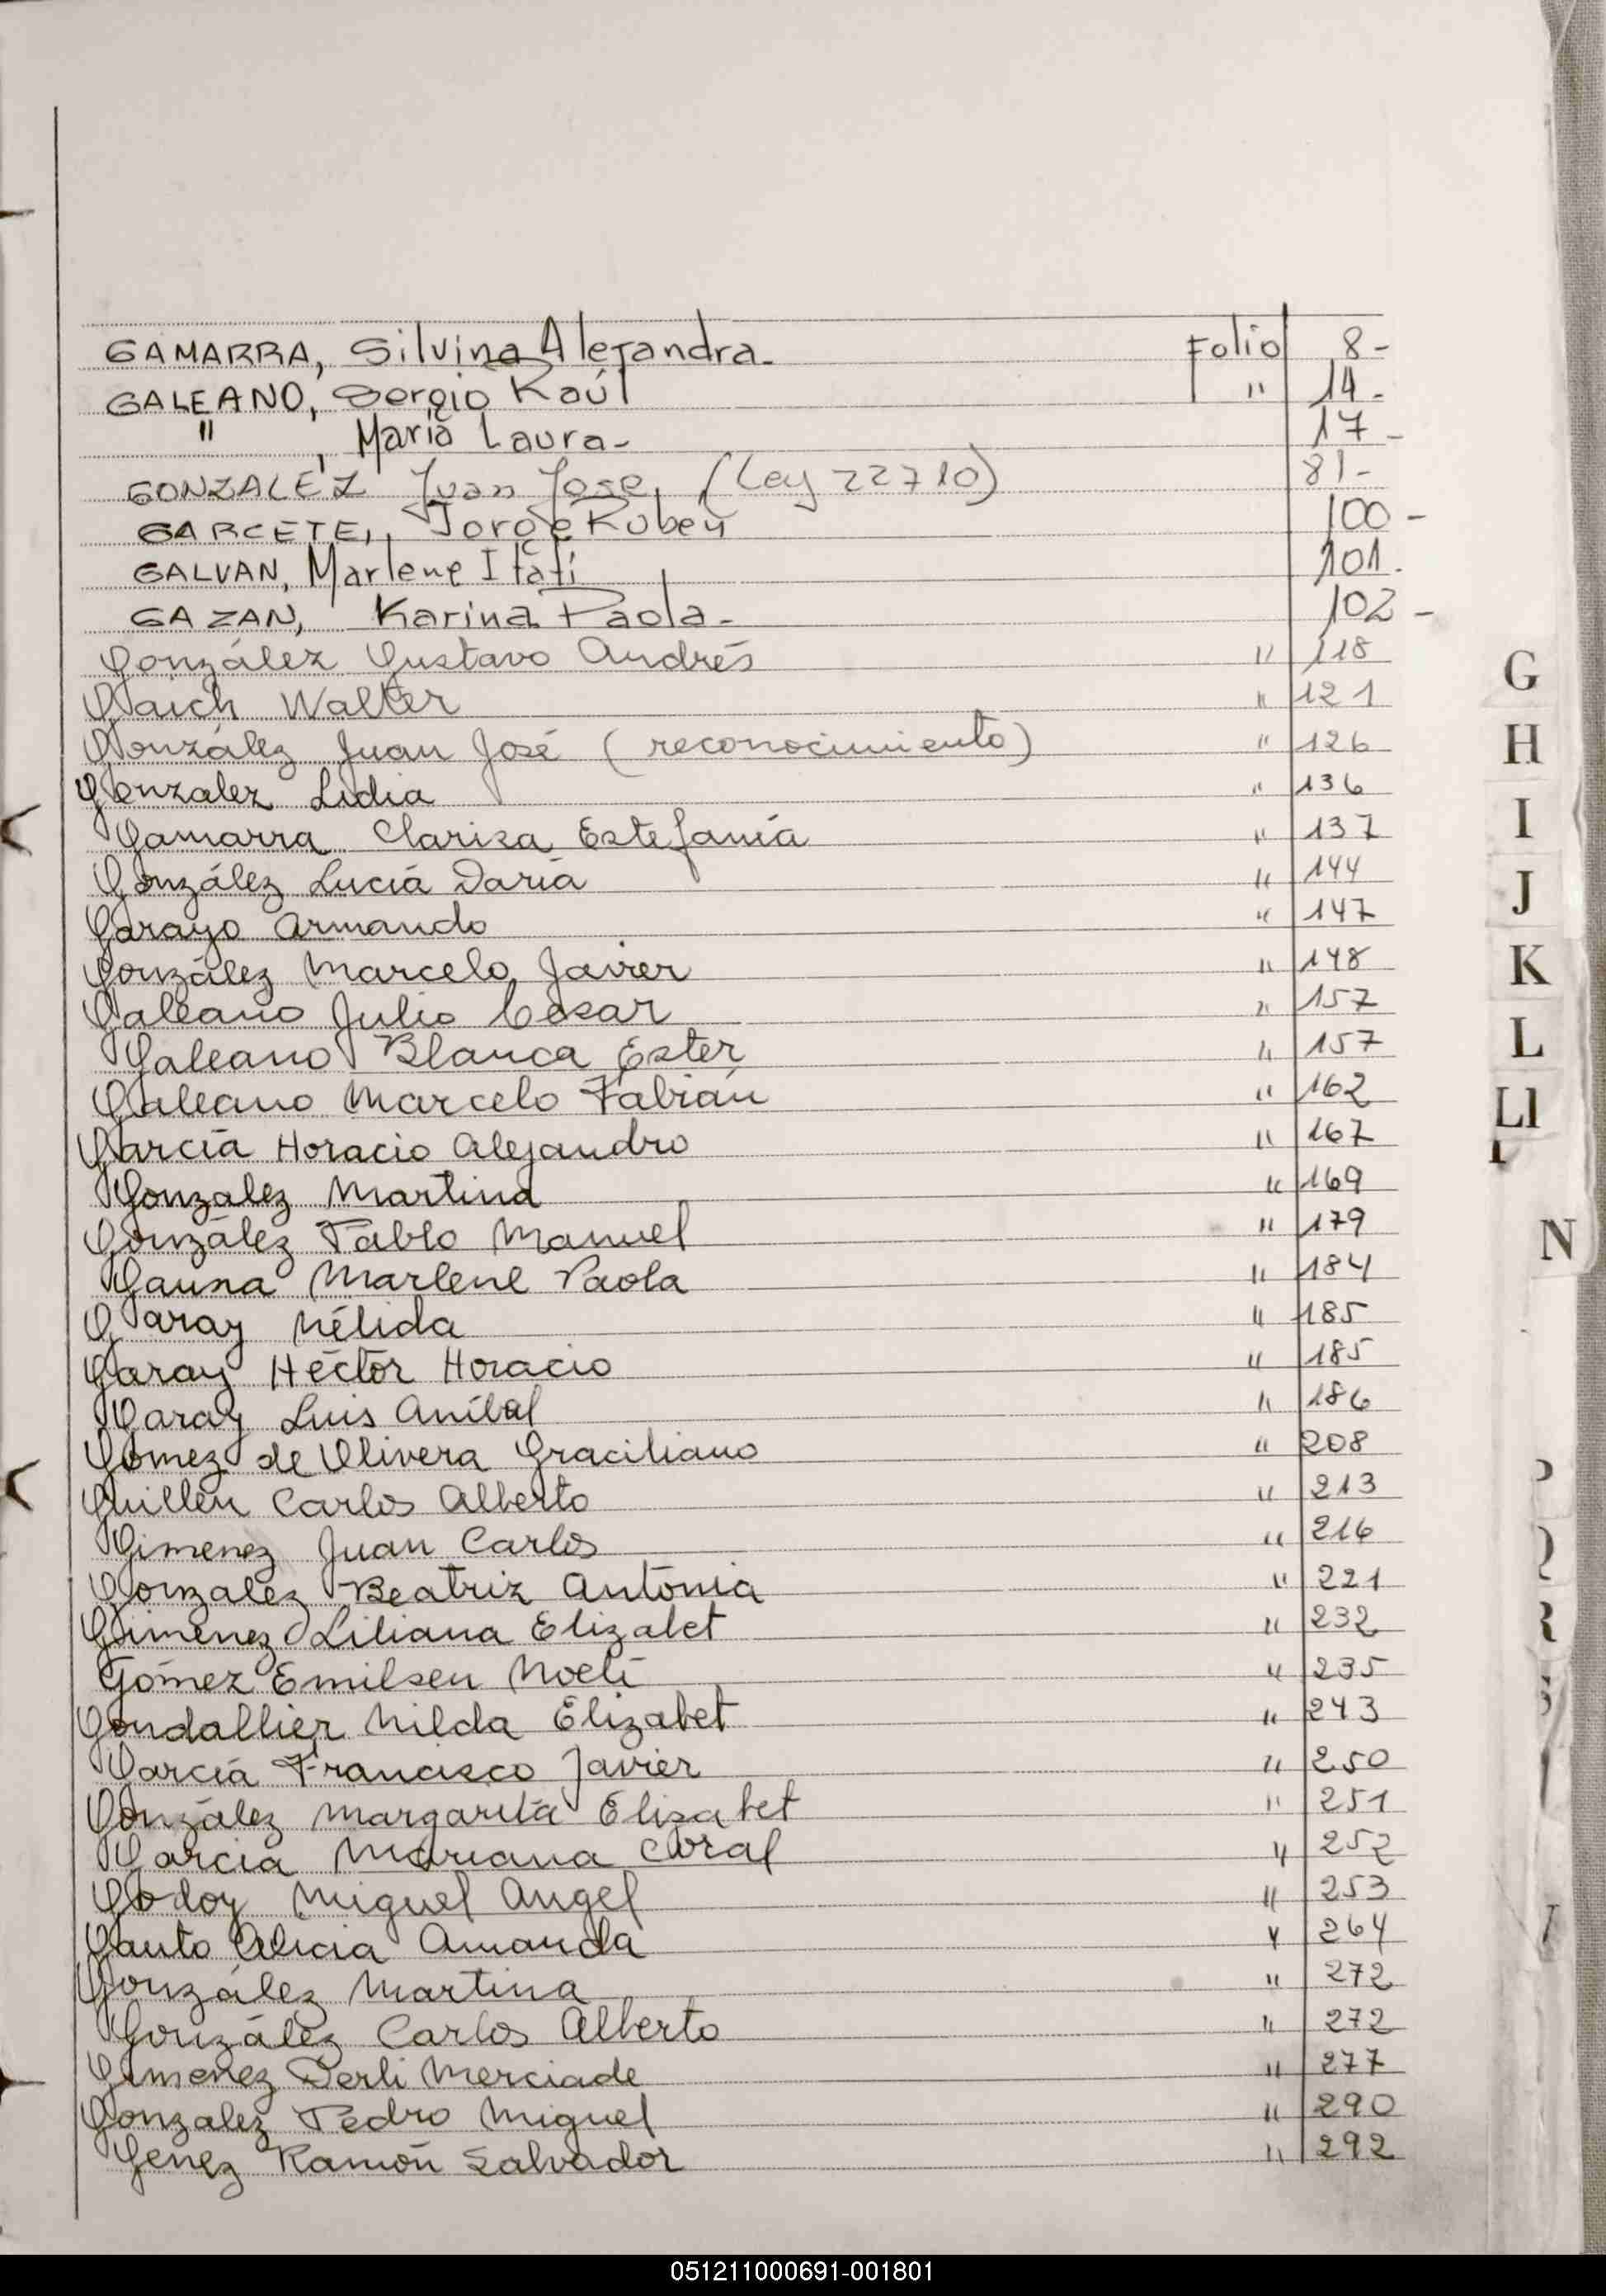 GAMARRA, Silvina Alejandra. Folio 8-
GALEANO, Sergio Raúl " 14-
" , María Laura- 17-
GONZALEZ Juan Jose, (Ley 22710) 81-
GARCETE, Jorge Ruben 100-
GALVAN, Marlene Itatí 101.
GAZAN, Karina Paola- 102-
González Gustavo Andrés " 118
Gaich Walter " 121
González Juan José (reconocimiento) " 126
Gonzalez Lidia " 136
Gamarra Clarisa Estefanía " 137
González Lucía Daria " 144
Garayo Armando " 147
González Marcelo Javier " 148
Galeano Julio Cesar " 157
Galeano Blanca Ester " 157
Galeano Marcelo Fabián " 162
García Horacio Alejandro " 167
Gonzalez Martina " 169
González Pablo Manuel " 179
Gauna Marlene Paola " 184
Garay Nélida " 185
Garay Héctor Horacio " 185
Garay Luis Aníbal " 186
Gómez de Olivera Graciliano " 208
Guillén Carlos Alberto " 213
Gimenez Juan Carlos " 216
Gonzalez Beatriz Antonia " 221
Gimenez Liliana Elizabet " 232
Gómez Emilsen Noelí " 235
Gondallier Nilda Elizabet " 243
García Francisco Javier " 250
González Margarita Elisabet " 251
García Mariana Coral " 252
Godoy Miguel Angel " 253
Gauto Alicia Amanda " 264
González Martina " 272
González Carlos Alberto " 272
Gimenez Derli Merciade " 277
Gonzalez Pedro Miguel " 290
Genez Ramón Salvador " 292
G
H
I
J
K
L
Ll
N
051211000691-001801